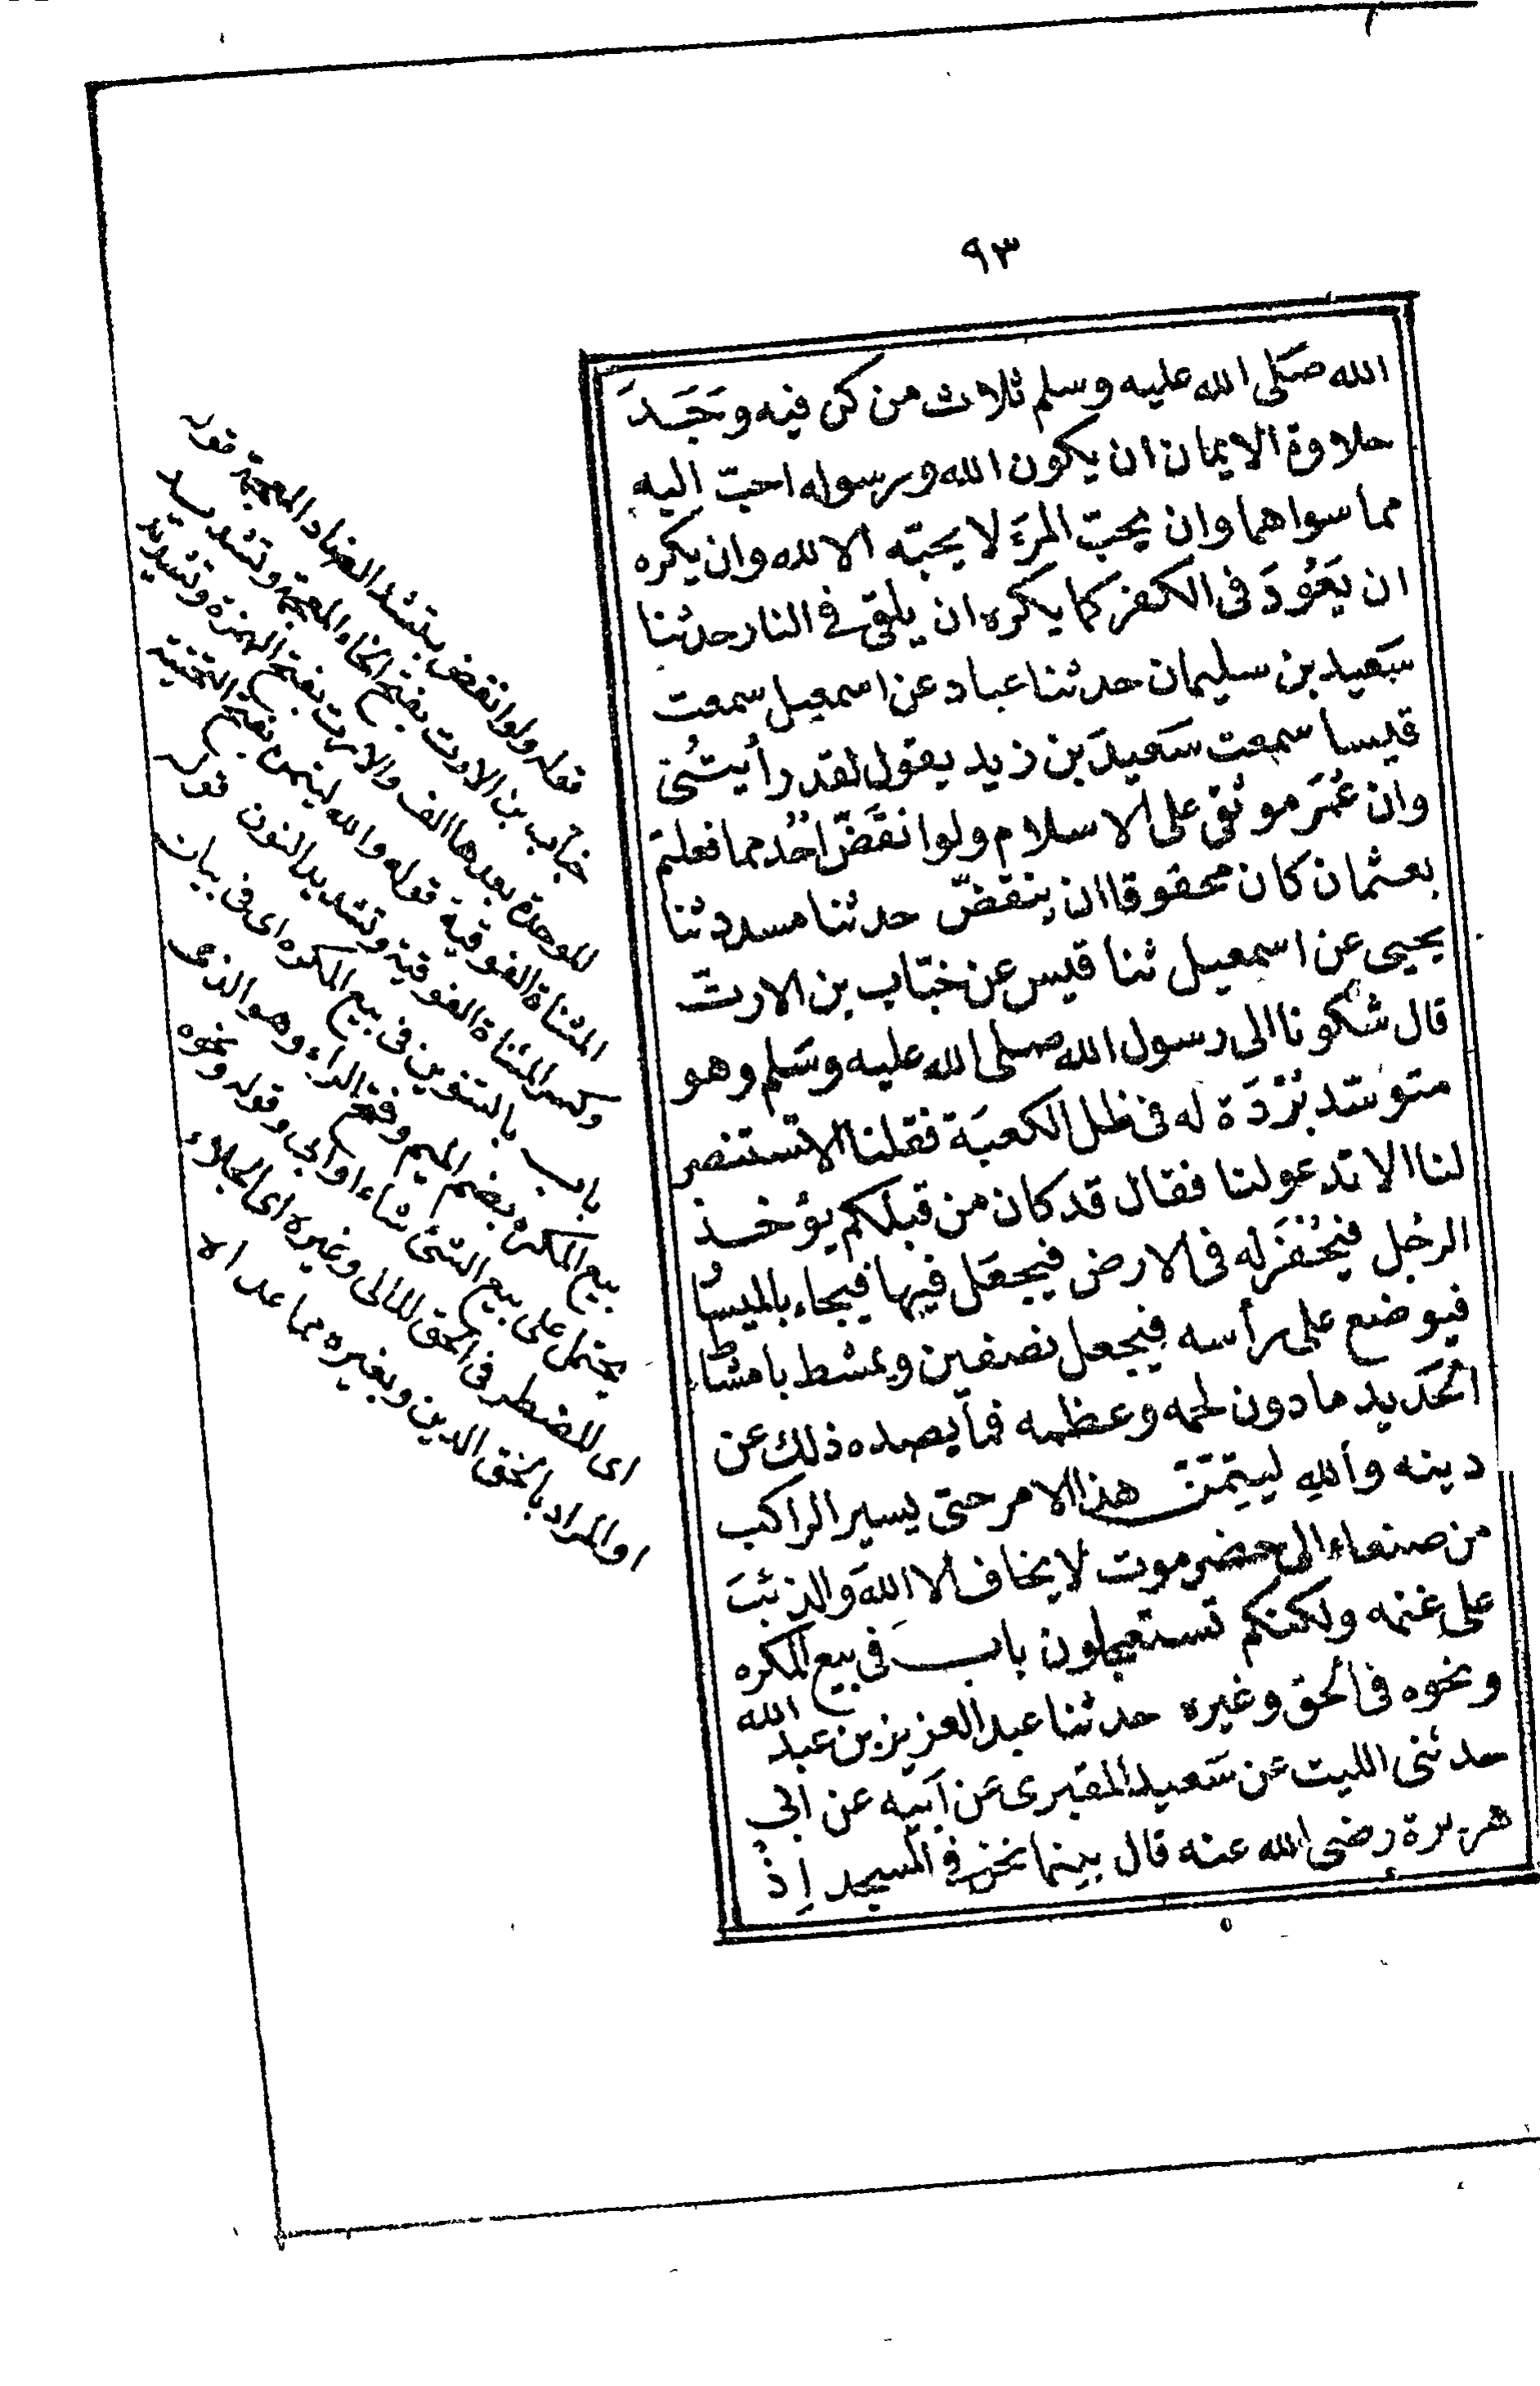 ٩٣
الله صَلى الله عليه وسلم ثلاث من كن فيه وَجَدَ
حلاوة الايمان ان يكون الله ورسوله احبّ اليه
مما سواهما وان يحبّ المرَء لا يحبّه الا لله وان يكره
ان يَعُودَ فى الكفر كما يكره ان يلقى فى النار حدثنا
سَعيد بن سليمان حدثنا عباد عن اسمعيل سمعت
قيسا سمعت سَعيدَ بن زيد يقول لقد رأيتُنى
وان عُمَرَ موثقى على الاسلام ولو انقَضّ اُحُد مما فعلتم
بعثمان كان محقوقا ان ينقضّ حدثنا مسدد ثنا
يحيى عن اسمعيل ثنا قيس عن خبّاب بن الارتّ
قال شكونا الى رسول الله صلى الله عليه وسَلم وهو
متوسّد بُرْدَة له فى ظل الكعبَة فقلنا الا تستنصر
لنا الا تدعو لنا فقال قد كان من قبلكم يؤخذ
الرجُل فيُحْفَر له فى الارض فيجعَل فيها فيجاء بالميسار
فيوضع على رأسه فيجعل نصفين ويمشط بامشاط
الحَديد ما دون لحمه وعظمه فما يصده ذلك عن
دينه والله ليتِمّنّ هذا الامر حتى يسير الراكب
من صنعاء الى حضرموت لا يخاف الا اللهَ والذئبَ
على غنمه ولكنكم تستعجلون باب فى بيع المكره
ونحوه فى الحق وغيره حدثنا عبد العزيز بن عبد الله
حدثنى الليث عن سَعيد المقبرى عَن اَبيه عن ابى
هريرة رضى الله عنه قال بينما نحن فى المسجد اِذْ
قوله ولو انقض بتشد الضاد المعجمة قوله
خبّاب بن الارت بفتح الخاء المعجمة وتشديد
الموحدة بعدها الف والارت بفتح الهمزة وتشديد
المثناة الفوقية قوله والله ليتمن بفتح التحتية
وكسر المثناة الفوقية وتشديد النون قوله
باب بالتنوين فى بيع المكره اى فى بيان
بيع المكره بضم الميم وفتح الراء وهو الذى
يحتمل على بيع الشئ شاء او ابى وقوله ونحوه
اى المضطر فى الحق المالى وغيره اى الجلاء
او المراد بالحق الدين وبغيره مما عدا الا